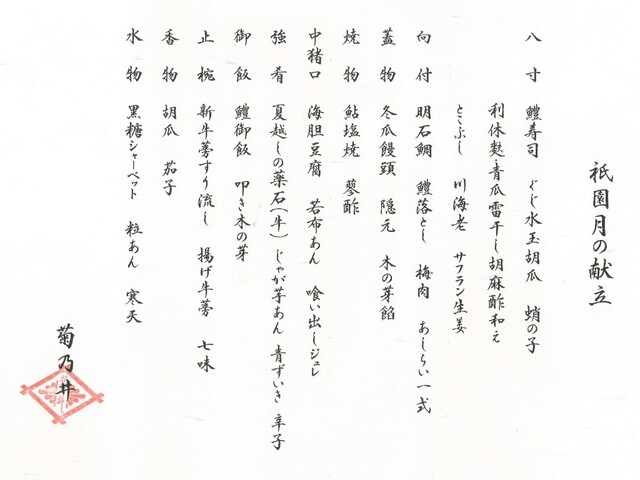 祇園月の献立
八寸 鱧寿司 ぐじ水玉胡瓜 蛸の子
利休麩・青瓜雷干し胡麻酢和え
とこぶし 川海老 サフラン生姜
向付 明石鯛 鱧落とし 梅肉 あしらい一式
蓋物 冬瓜饅頭 隠元 木の芽餡
焼物 鮎塩焼 蓼酢
中猪口 海胆豆腐 若布あん 喰い出しジュレ
強肴 夏越しの薬石(牛) じゃが芋あん 青ずいき 辛子
御飯 鱧御飯 叩き木の芽
止椀 新牛蒡すり流し 揚げ牛蒡 七味
香物 胡瓜 茄子
水物 黒糖シャーベット 粒あん 寒天
菊乃井